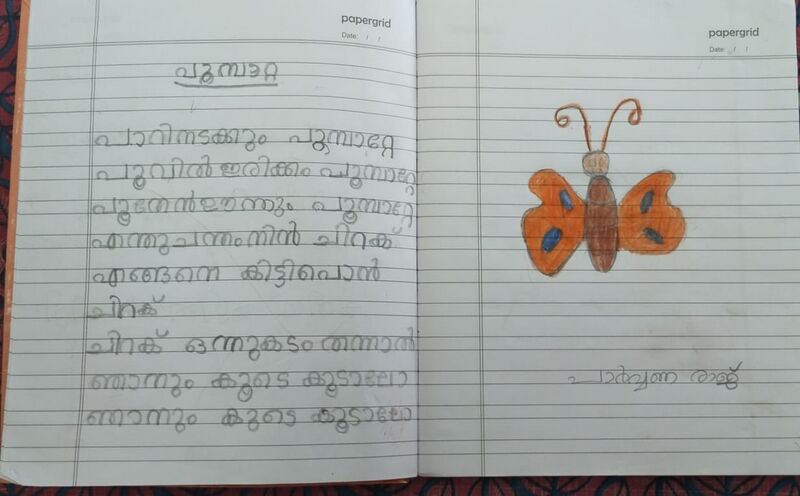 papergrid
Date: / /
പൂമ്പാറ്റ
പാറിനടക്കും പൂമ്പാറ്റേ
പൂവിൽ ഇരിക്കം പൂമ്പാറ്റേ
പൂന്തേൻഉണ്ണും പൂമ്പാറ്റേ
എന്തുചന്തംനിൻ ചിറക്
എങ്ങനെ കിട്ടിപൊൻ
ചിറക്
ചിറക് ഒന്നുകടം തന്നാൽ
ഞാനും കൂടെ കൂടാലോ
ഞാനും കൂടെ കൂടാലോ
papergrid
Date: / /
പാർവ്വണ രാജ്